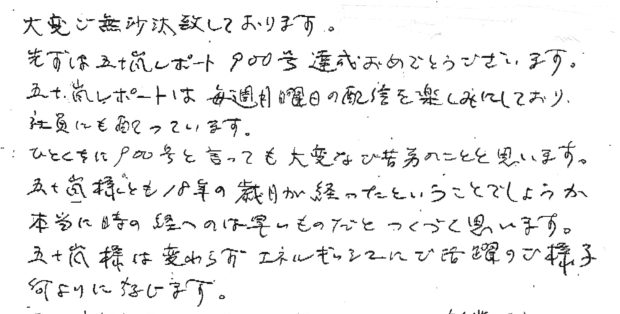 大変ご無沙汰致しております。
先ずは五十嵐レポート900号達成おめでとうございます。
五十嵐レポートは毎週月曜日の配信を楽しみにしており、
社員にも配っています。
ひとくちに900号と言っても大変なご苦労のことと思います。
五十嵐様とも18年の歳月が経ったということでしょうか
本当に時の経つのは早いものだとつくづく思います。
五十嵐様は変わらずエネルギッシュにご活躍のご様子
何よりに存じます。